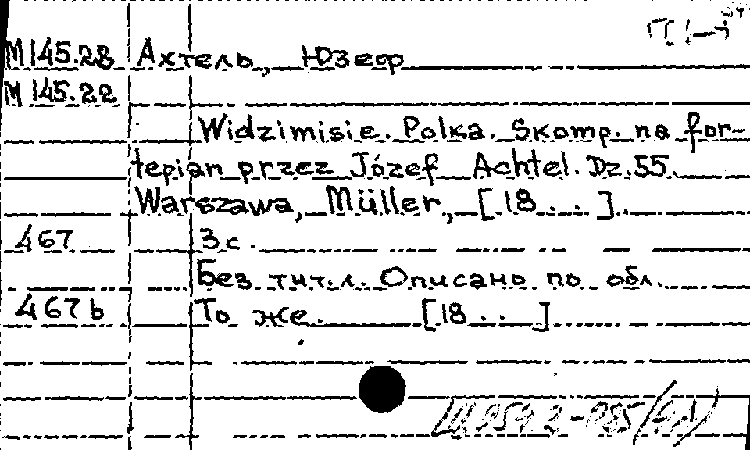 М145.28 Ахтель, Юзеф
М145.22
Widzimisie. Polka. Skomp. na for-
tepian przez Józef Achtel. Dz.55.
Warszawa, Müller, [18...].
467 3 с.
Без тит.л. Описано по обл.
467b То же. [18...]